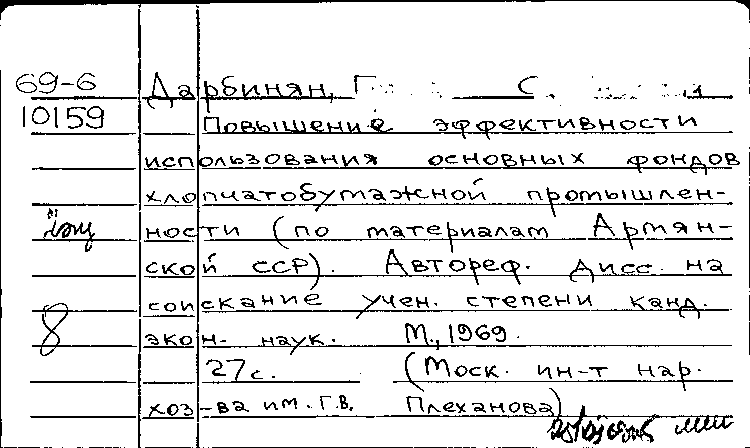 69-6 Дарбинян, Г С.
10159 Повышение эффективности
использования основных фондов
хлопчатобумажной промышлен-
ности (по материалам Армян-
ской ССР). Автореф. дисс. на
соискание учен. степени канд.
8 экон. наук. М., 1969.
27 с. (Моск. ин-т нар.
хоз-ва им. Г.В. Плеханова)